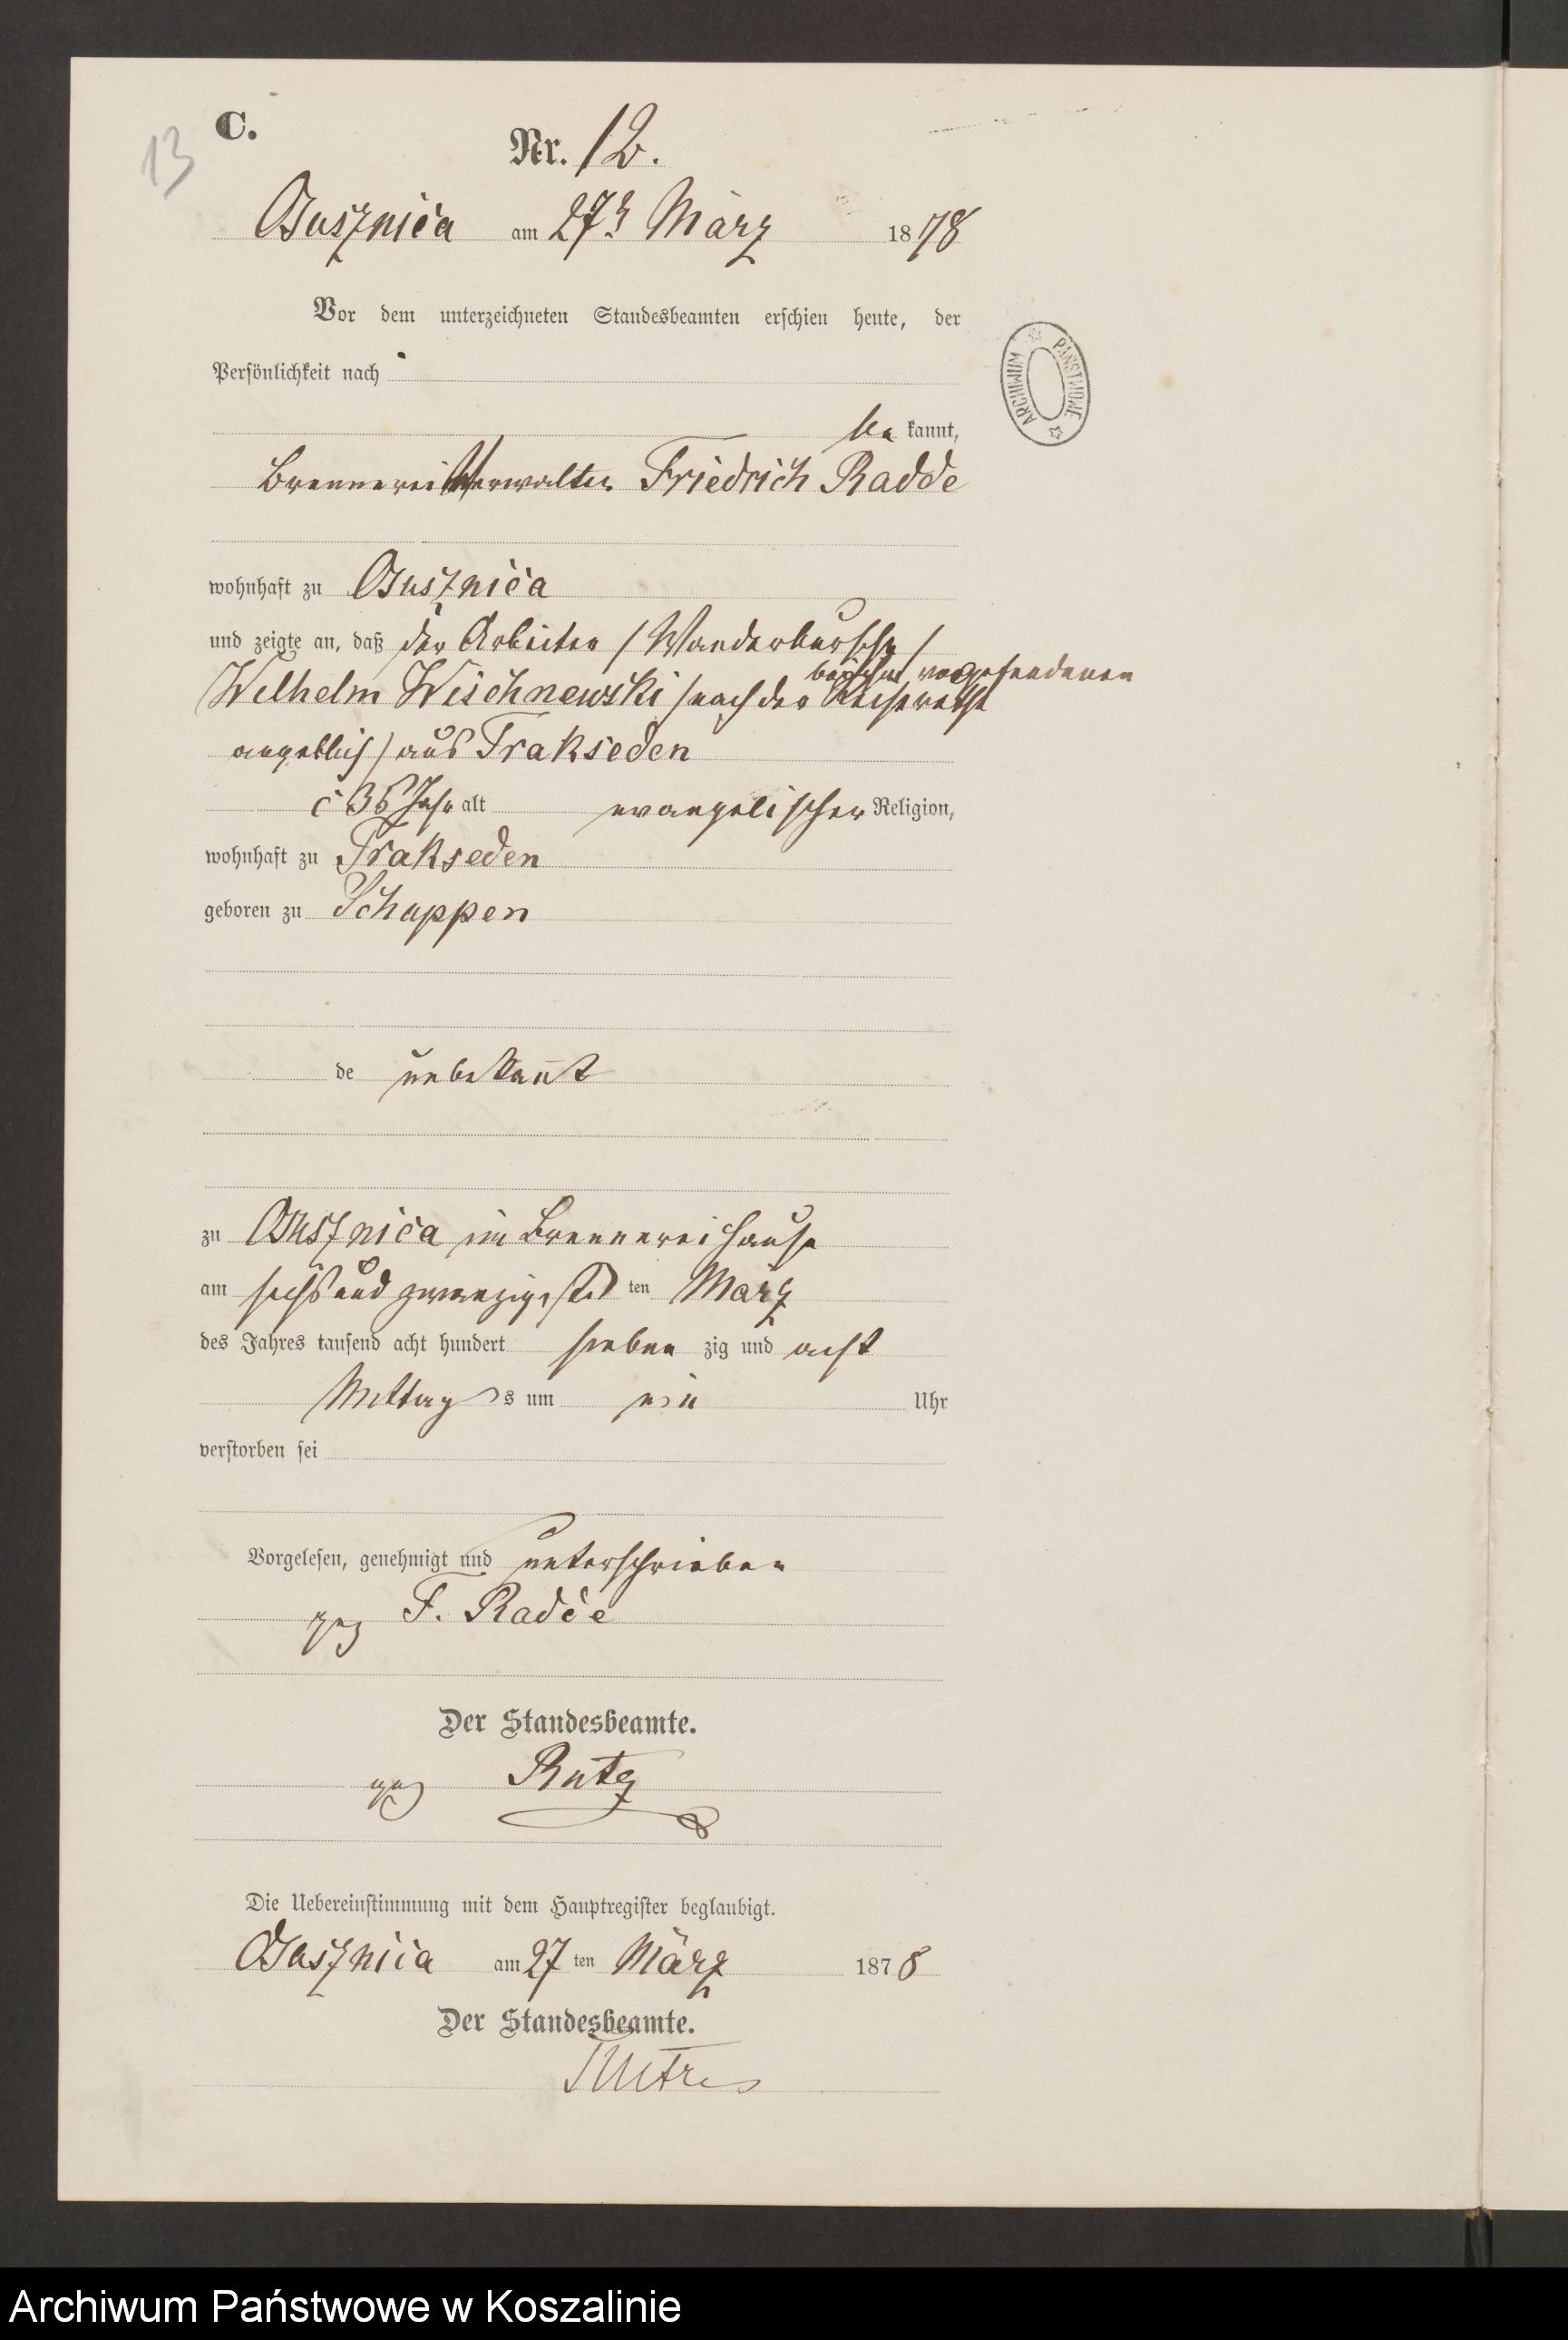 13
C.
Nr. 12.
Gusznica am 27t März 1878
Vor dem unterzeichneten Standesbeamten erschien heute, der
Persönlichkeit nach
be kannt,
Brennereiverwalter Friedrich Radde
wohnhaft zu Gusznica
und zeigte an, daß der Arbeiter / Wanderbursche /
Wilhelm Wischnewski / nach der bei ihm vorgefundenen
angeblich / aus Trakseden
c 36 Jahr alt evangelischer Religion,
wohnhaft zu Trakseden
geboren zu Schuppen
de unbekannt
zu Gusznica im Brennereihause
am sechs und zwanzigsten ten März
des Jahres tausend acht hundert sieben zig und acht
Mittag s um ein Uhr
verstorben sei
Vorgelesen, genehmigt und unterschrieben
gez F. Radde
Der Standesbeamte.
gez Rutz
Die Uebereinstimmung mit dem Hauptregister beglaubigt.
Gusznica am 27 ten März 1878
Der Standesbeamte.
ARCHIWUM PAŃSTWOWE
Archiwum Państwowe w Koszalinie